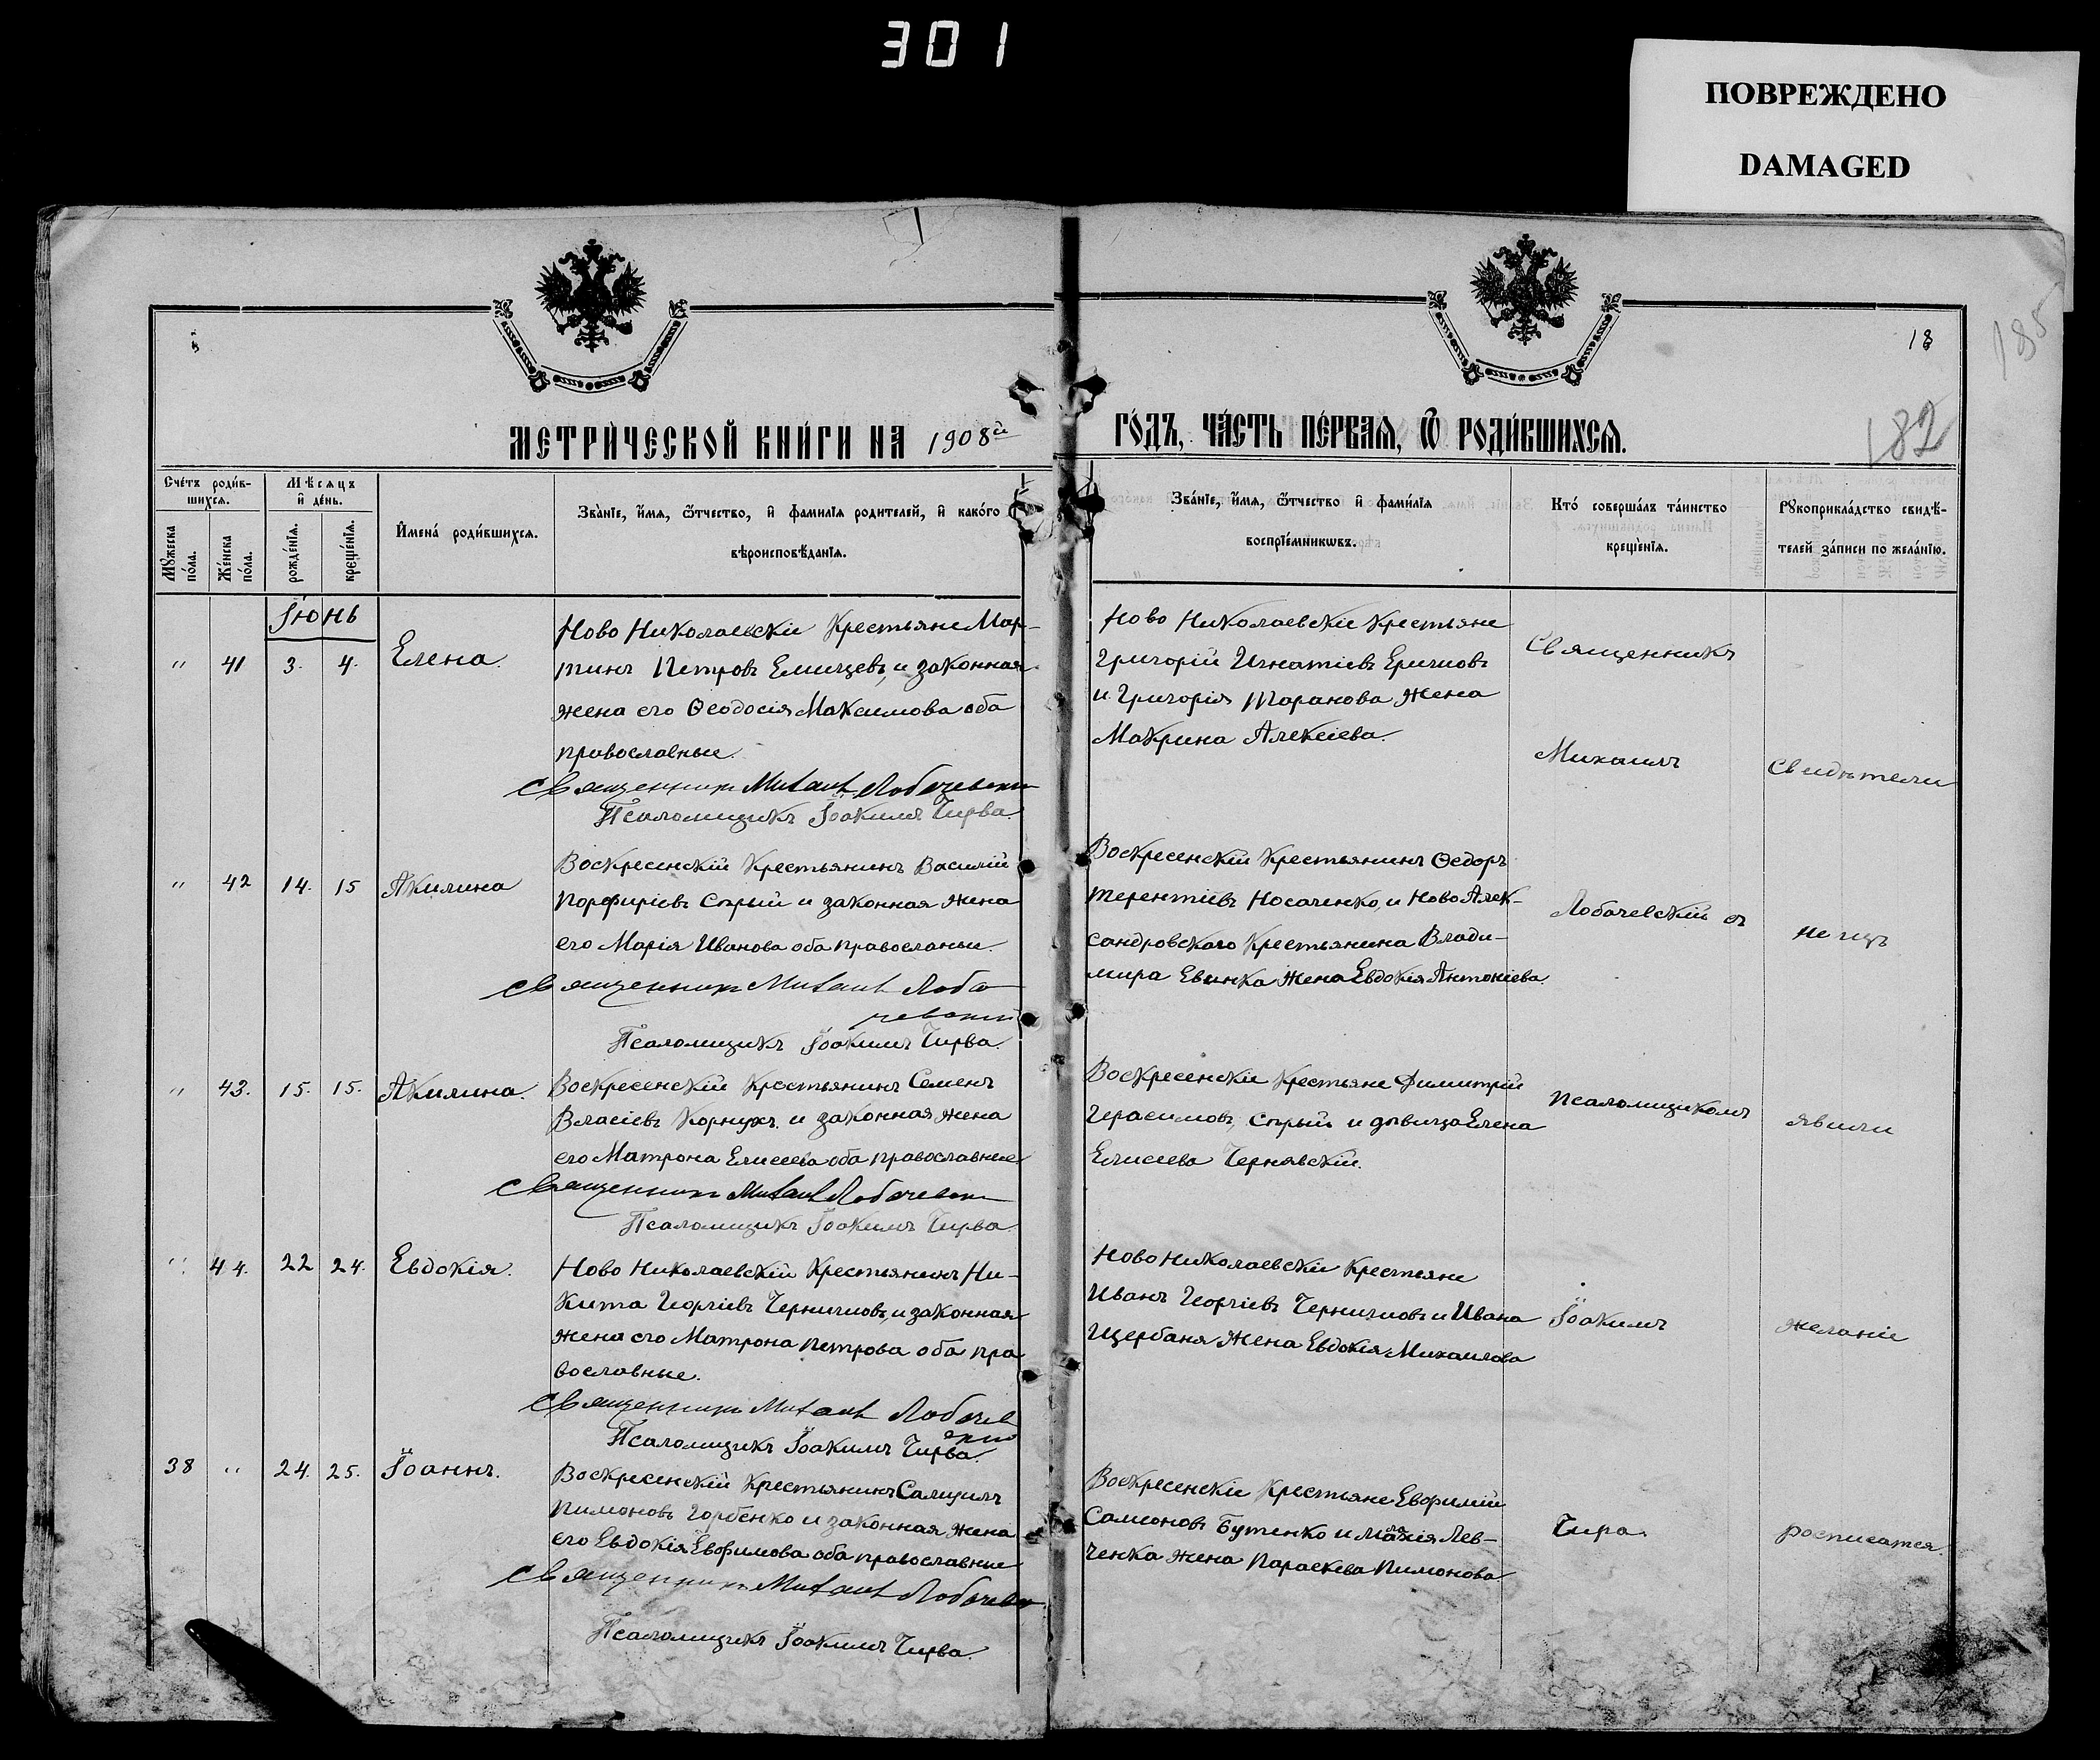 301
ПОВРЕЖДЕНО
DAMAGED
185
18
182
МЕТРИЧЕСКОЙ КНИГИ НА 1908й
ГОДЪ, ЧАСТЬ ПЕРВАЯ, Ѿ РОДИВШИХСЯ.
Счетъ родив-
шихся.
Мѣсяцъ
и день.
Мужеска
пола.
Женска
пола.
рожденія.
крещенія.
Имена родившихся.
Званіе, имя, ѿтчество, и фамилія родителей, и какого
вѣроисповѣданія.
Званіе, имя, ѿтчество и фамилія
воспріемниковъ.
Кто совершалъ таинство
крещенія.
Рукоприкладство свидѣ-
телей записи по желанію.
Іюнь
" 41 3. 4. Елена.
Ново Николаевскіе Крестьяне Мар-
тинъ Петровъ Емичевъ, и законная
жена его Ѳеодосія Максимова оба
православные.
Священникъ Михаилъ Лобачевскій
Псаломщикъ Іоакимъ Чирва.
Ново Николаевскіе Крестьяне
Григорій Игнатіевъ Еричовъ
и Григорія Таранова жена
Макрина Алексіева.
" 42 14. 15 Акилина
Воскресенскій Крестьянинъ Василій
Порфиріевъ Сѣрый и законная жена
его Марія Иванова оба православные.
Священникъ Михаилъ Лоба
чевскій
Псаломщикъ Іоакимъ Чирва.
Воскресенскій Крестьянинъ Ѳедоръ
Терентіевъ Носаченко, и Ново Алек-
сандровскаго Крестьянина Влади-
мира Евинка жена Евдокія Антоніева.
" 43. 15. 15. Акилина.
Воскресенскій Крестьянинъ Семенъ
Власіевъ Корнухъ и законная жена
его Матрона Елисеева оба православные
Священникъ Михаилъ Лобачевскій
Псаломщикъ Іоакимъ Чирва.
Воскресенскіе Крестьяне Димитрій
Герасимовъ, Сѣрый и дѣвица Елена
Елисеева Чернявскій.
" 44. 22 24. Евдокія.
Ново Николаевскій Крестьянинъ Ни-
кита Георгіевъ Черничовъ, и законная
жена его Матрона Петрова оба пра
вославные.
Священникъ Михаилъ Лобачев
скій
Псаломщикъ Іоакимъ Чирва.
Ново Николаевскіе Крестьяне
Иванъ Георгіевъ Черничовъ и Ивана
Щербаня жена Евдокія Михаилова
38 " 24. 25. Іоаннъ.
Воскресенскій Крестьянинъ Самуилъ
Пимоновъ Горбенко и законная жена
его Евдокія Евфимова оба православные
Священникъ Михаилъ Лобачевск
Псаломщикъ Іоакимъ Чирва.
Воскресенскіе Крестьяне Евфимій
Самсоновъ Бутенко и Лев-
ченка жена Параскева Пимонова
Священникъ
Михаилъ
Лобачевскій съ
Псаломщикомъ
Іоакимъ
Чира.
Свидѣтели
не изъ
явили
желаніе
росписатся.